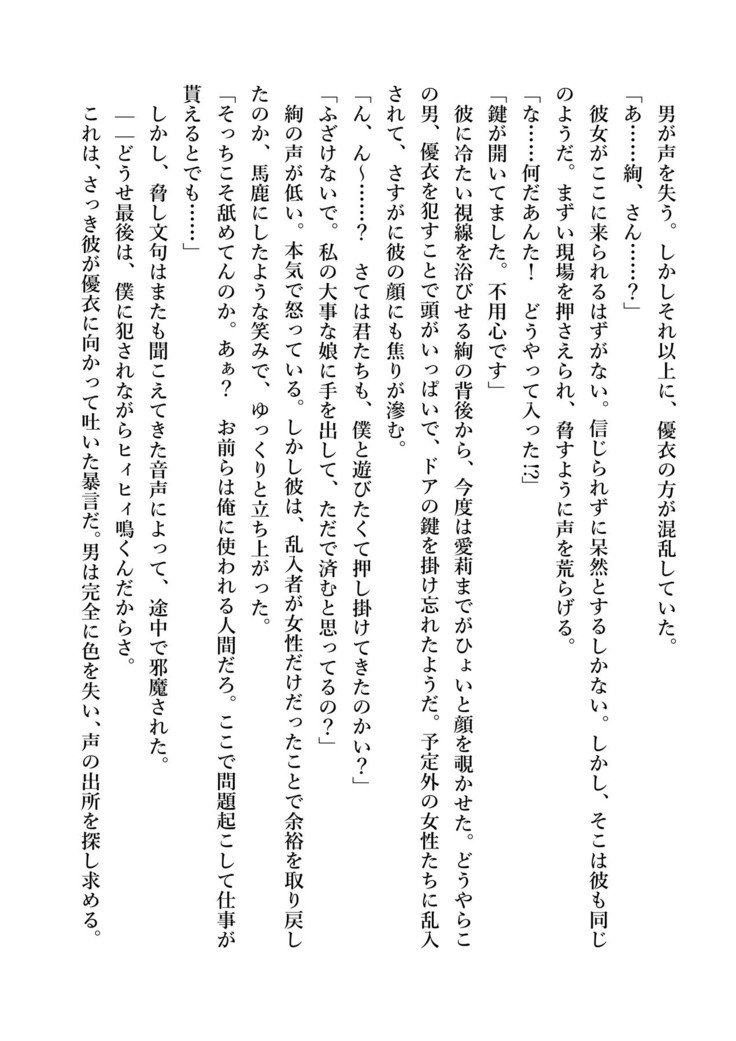 男が声を失う。しかしそれ以上に、優衣の方が混乱していた。
「あ……絢、さん……？」
　彼女がここに来られるはずがない。信じられずに呆然とするしかない。しかし、そこは彼も同じ
のようだ。まずい現場を押さえられ、脅すように声を荒らげる。
「な……何だあんた！　どうやって入った!?」
「鍵が開いてました。不用心です」
　彼に冷たい視線を浴びせる絢の背後から、今度は愛莉までがひょいと顔を覗かせた。どうやらこ
の男、優衣を犯すことで頭がいっぱいで、ドアの鍵を掛け忘れたようだ。予定外の女性たちに乱入
されて、さすがに彼の顔にも焦りが滲む。
「ん、ん～……？　さては君たちも、僕と遊びたくて押し掛けてきたのかい？」
「ふざけないで。私の大事な娘に手を出して、ただで済むと思ってるの？」
　絢の声が低い。本気で怒っている。しかし彼は、乱入者が女性だけだったことで余裕を取り戻し
たのか、馬鹿にしたような笑みで、ゆっくりと立ち上がった。
「そっちこそ舐めてんのか。あぁ？　お前らは俺に使われる人間だろ。ここで問題起こして仕事が
貰えるとでも……」
　しかし、脅し文句はまたも聞こえてきた音声によって、途中で邪魔された。
　――どうせ最後は、僕に犯されながらヒィヒィ鳴くんだからさ。
　これは、さっき彼が優衣に向かって吐いた暴言だ。男は完全に色を失い、声の出所を探し求める。